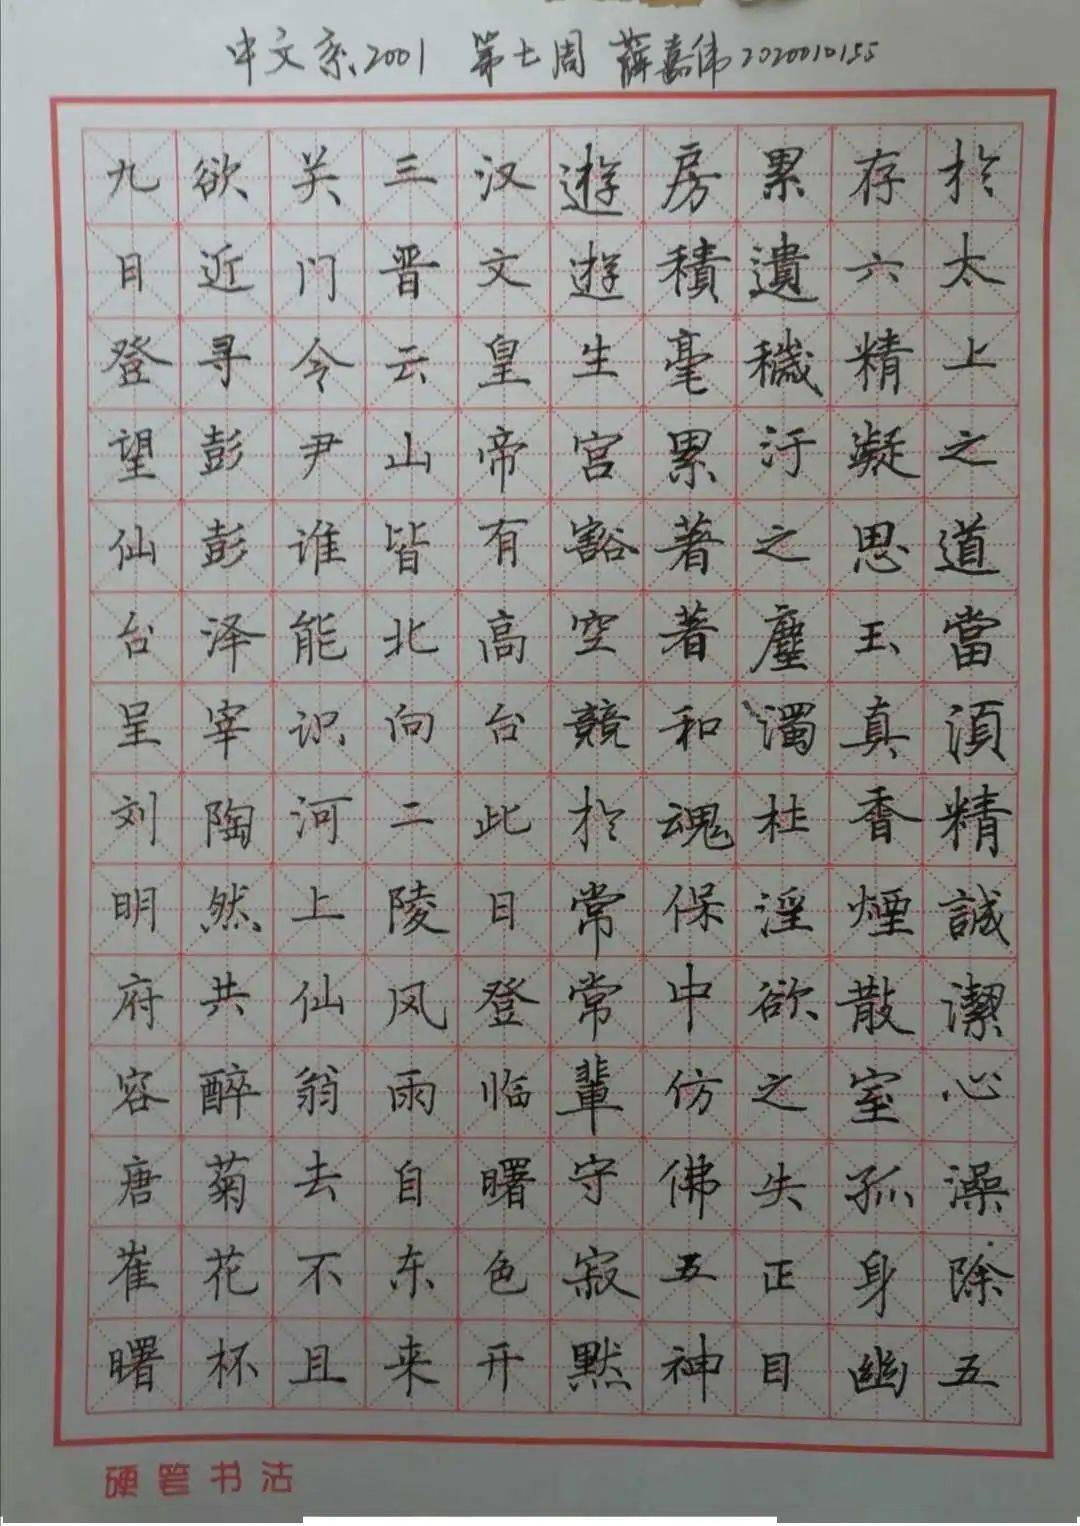 中文系2001 第七周 薛嘉伟2020010155
於太上之道當湏精誠潔心澡除五
存六精凝思玉真香煙散室孤身幽
累遺穢汙之塵濁杜淫欲之失正目
房積毫累著著和魂保中仿佛五神
遊遊生宮豁空競於常常輩守寂默
汉文皇帝有高台此日登临曙色开
三晋云山皆北向二陵风雨自东来
关门令尹谁能识河上仙翁去不且
欲近寻彭彭泽宰陶然共醉菊花杯
九日登望仙台呈刘明府容唐崔曙
硬笔书法